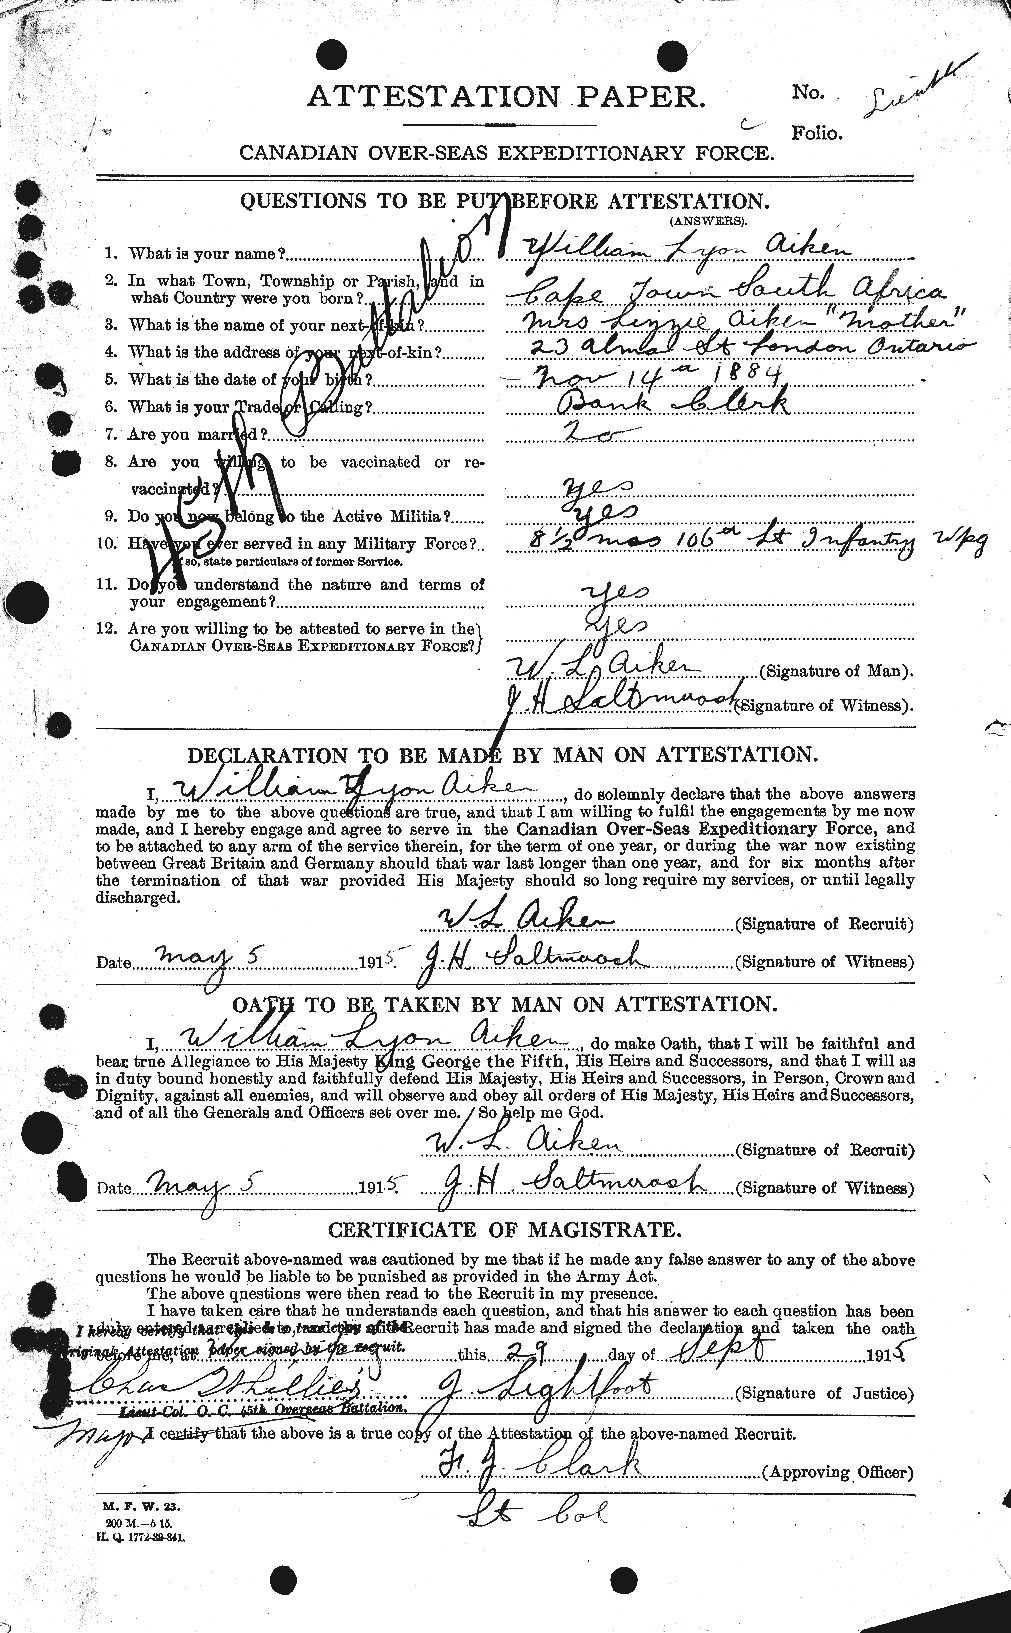 ATTESTATION PAPER.
No.
Lieut
Folio.
CANADIAN OVER-SEAS EXPEDITIONARY FORCE.
QUESTIONS TO BE PUT BEFORE ATTESTATION.
(ANSWERS).
45th Battalion
1. What is your name? William Lyon Aiken
2. In what Town, Township or Parish, and in
what Country were you born? Cape Town South Africa
3. What is the name of your next-of-kin? Mrs Lizzie Aiken "Mother"
4. What is the address of your next-of-kin? 23 Alma St London Ontario
5. What is the date of your birth? Nov 14th 1884
6. What is your Trade or Calling? Bank Clerk
7. Are you married? No
8. Are you willing to be vaccinated or re-
vaccinated? yes
9. Do you now belong to the Active Militia? yes
10. Have you ever served in any Military Force? 8 1/2 mos 106th Lt Infantry Wpg
If so, state particulars of former Service.
11. Do you understand the nature and terms of
your engagement? yes
12. Are you willing to be attested to serve in the
CANADIAN OVER-SEAS EXPEDITIONARY FORCE? yes
W. L. Aiken (Signature of Man).
J H Saltmarsh (Signature of Witness).
DECLARATION TO BE MADE BY MAN ON ATTESTATION.
I, William Lyon Aiken, do solemnly declare that the above answers
made by me to the above questions are true, and that I am willing to fulfil the engagements by me now
made, and I hereby engage and agree to serve in the Canadian Over-Seas Expeditionary Force, and
to be attached to any arm of the service therein, for the term of one year, or during the war now existing
between Great Britain and Germany should that war last longer than one year, and for six months after
the termination of that war provided His Majesty should so long require my services, or until legally
discharged.
W. L Aiken (Signature of Recruit)
Date May 5 1915. J. H Saltmarsh (Signature of Witness)
OATH TO BE TAKEN BY MAN ON ATTESTATION.
I, William Lyon Aiken, do make Oath, that I will be faithful and
bear true Allegiance to His Majesty King George the Fifth, His Heirs and Successors, and that I will as
in duty bound honestly and faithfully defend His Majesty, His Heirs and Successors, in Person, Crown and
Dignity, against all enemies, and will observe and obey all orders of His Majesty, His Heirs and Successors,
and of all the Generals and Officers set over me. So help me God.
W. L. Aiken (Signature of Recruit)
Date May 5 1915. J. H. Saltmarsh (Signature of Witness)
CERTIFICATE OF MAGISTRATE.
The Recruit above-named was cautioned by me that if he made any false answer to any of the above
questions he would be liable to be punished as provided in the Army Act.
The above questions were then read to the Recruit in my presence.
I have taken care that he understands each question, and that his answer to each question has been
duly entered as replied to, and the said Recruit has made and signed the declaration and taken the oath
I hereby certify that this is a true copy of the
Original Attestation paper signed by the recruit.
before me, at this 29 day of Sept 1915
J Lightfoot (Signature of Justice)
Lieut-Col. O. C. 45th Overseas Battalion.
Major
I certify that the above is a true copy of the Attestation of the above-named Recruit.
F. J. Clark (Approving Officer)
Lt Col
M. F. W. 23.
200 M.—5 15.
H. Q. 1772-39-841.